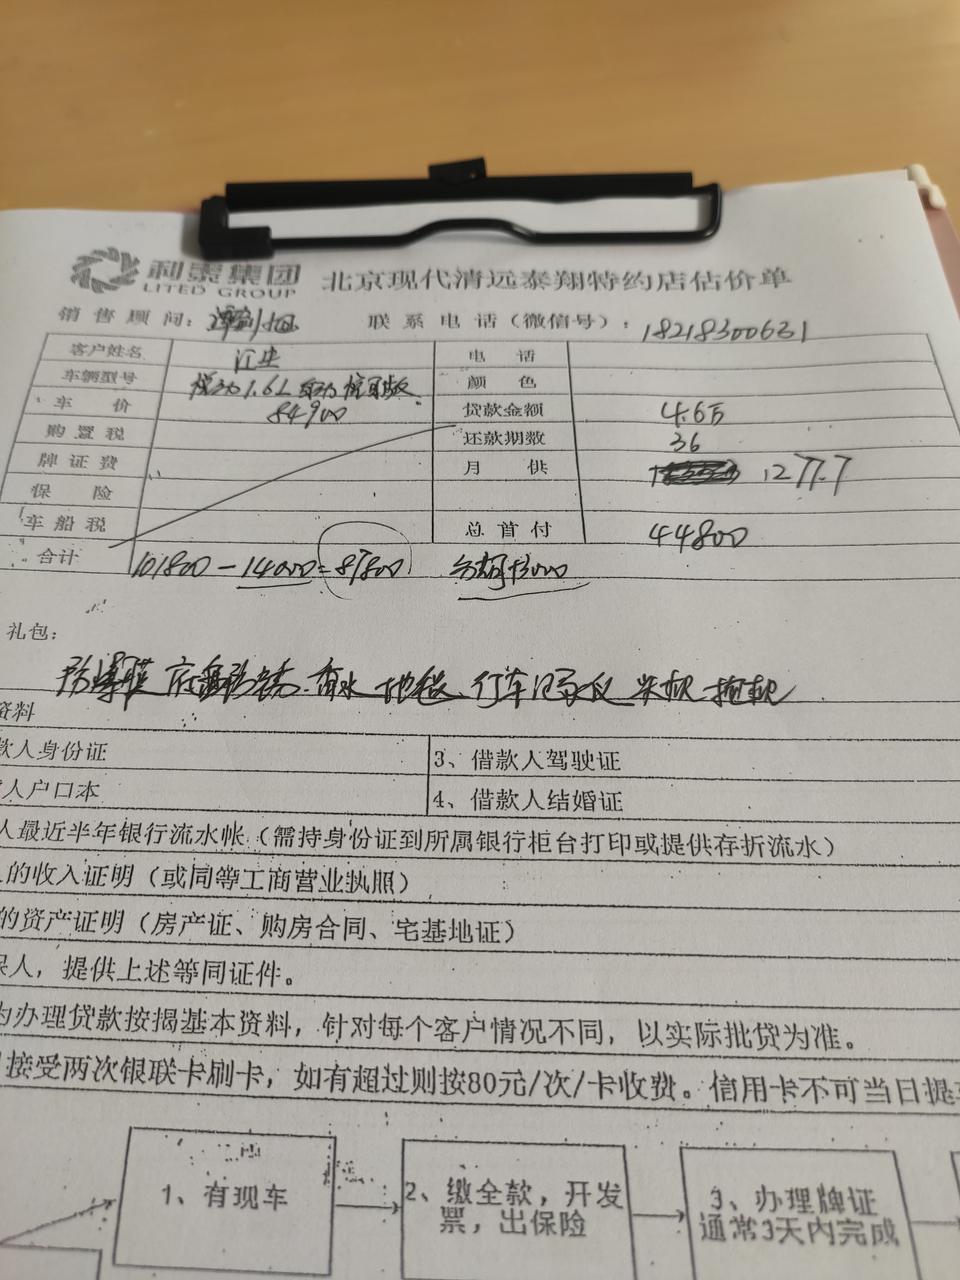 利泰集团
LITED GROUP
北京现代清远泰翔特约店估价单
销售顾问:
联系电话(微信号): 18218300631
客户姓名 电话
车辆型号 1.6L自动 颜色
车价 84900 贷款金额 4.6万
购置税 还款期数 36
牌证费 月供 1277.7
保险
车船税 总首付 44800
合计 101800-14000=87800 3000
礼包:
防爆膜 香水 地毯 行车记录仪
资料
款人身份证 3、借款人驾驶证
人户口本 4、借款人结婚证
人最近半年银行流水帐(需持身份证到所属银行柜台打印或提供存折流水)
的收入证明(或同等工商营业执照)
的资产证明(房产证、购房合同、宅基地证)
保人,提供上述等同证件。
为办理贷款按揭基本资料,针对每个客户情况不同,以实际批贷为准。
接受两次银联卡刷卡,如有超过则按80元/次/卡收费。信用卡不可当日提
1、有现车
2、缴全款,开发票,出保险
3、办理牌证通常3天内完成